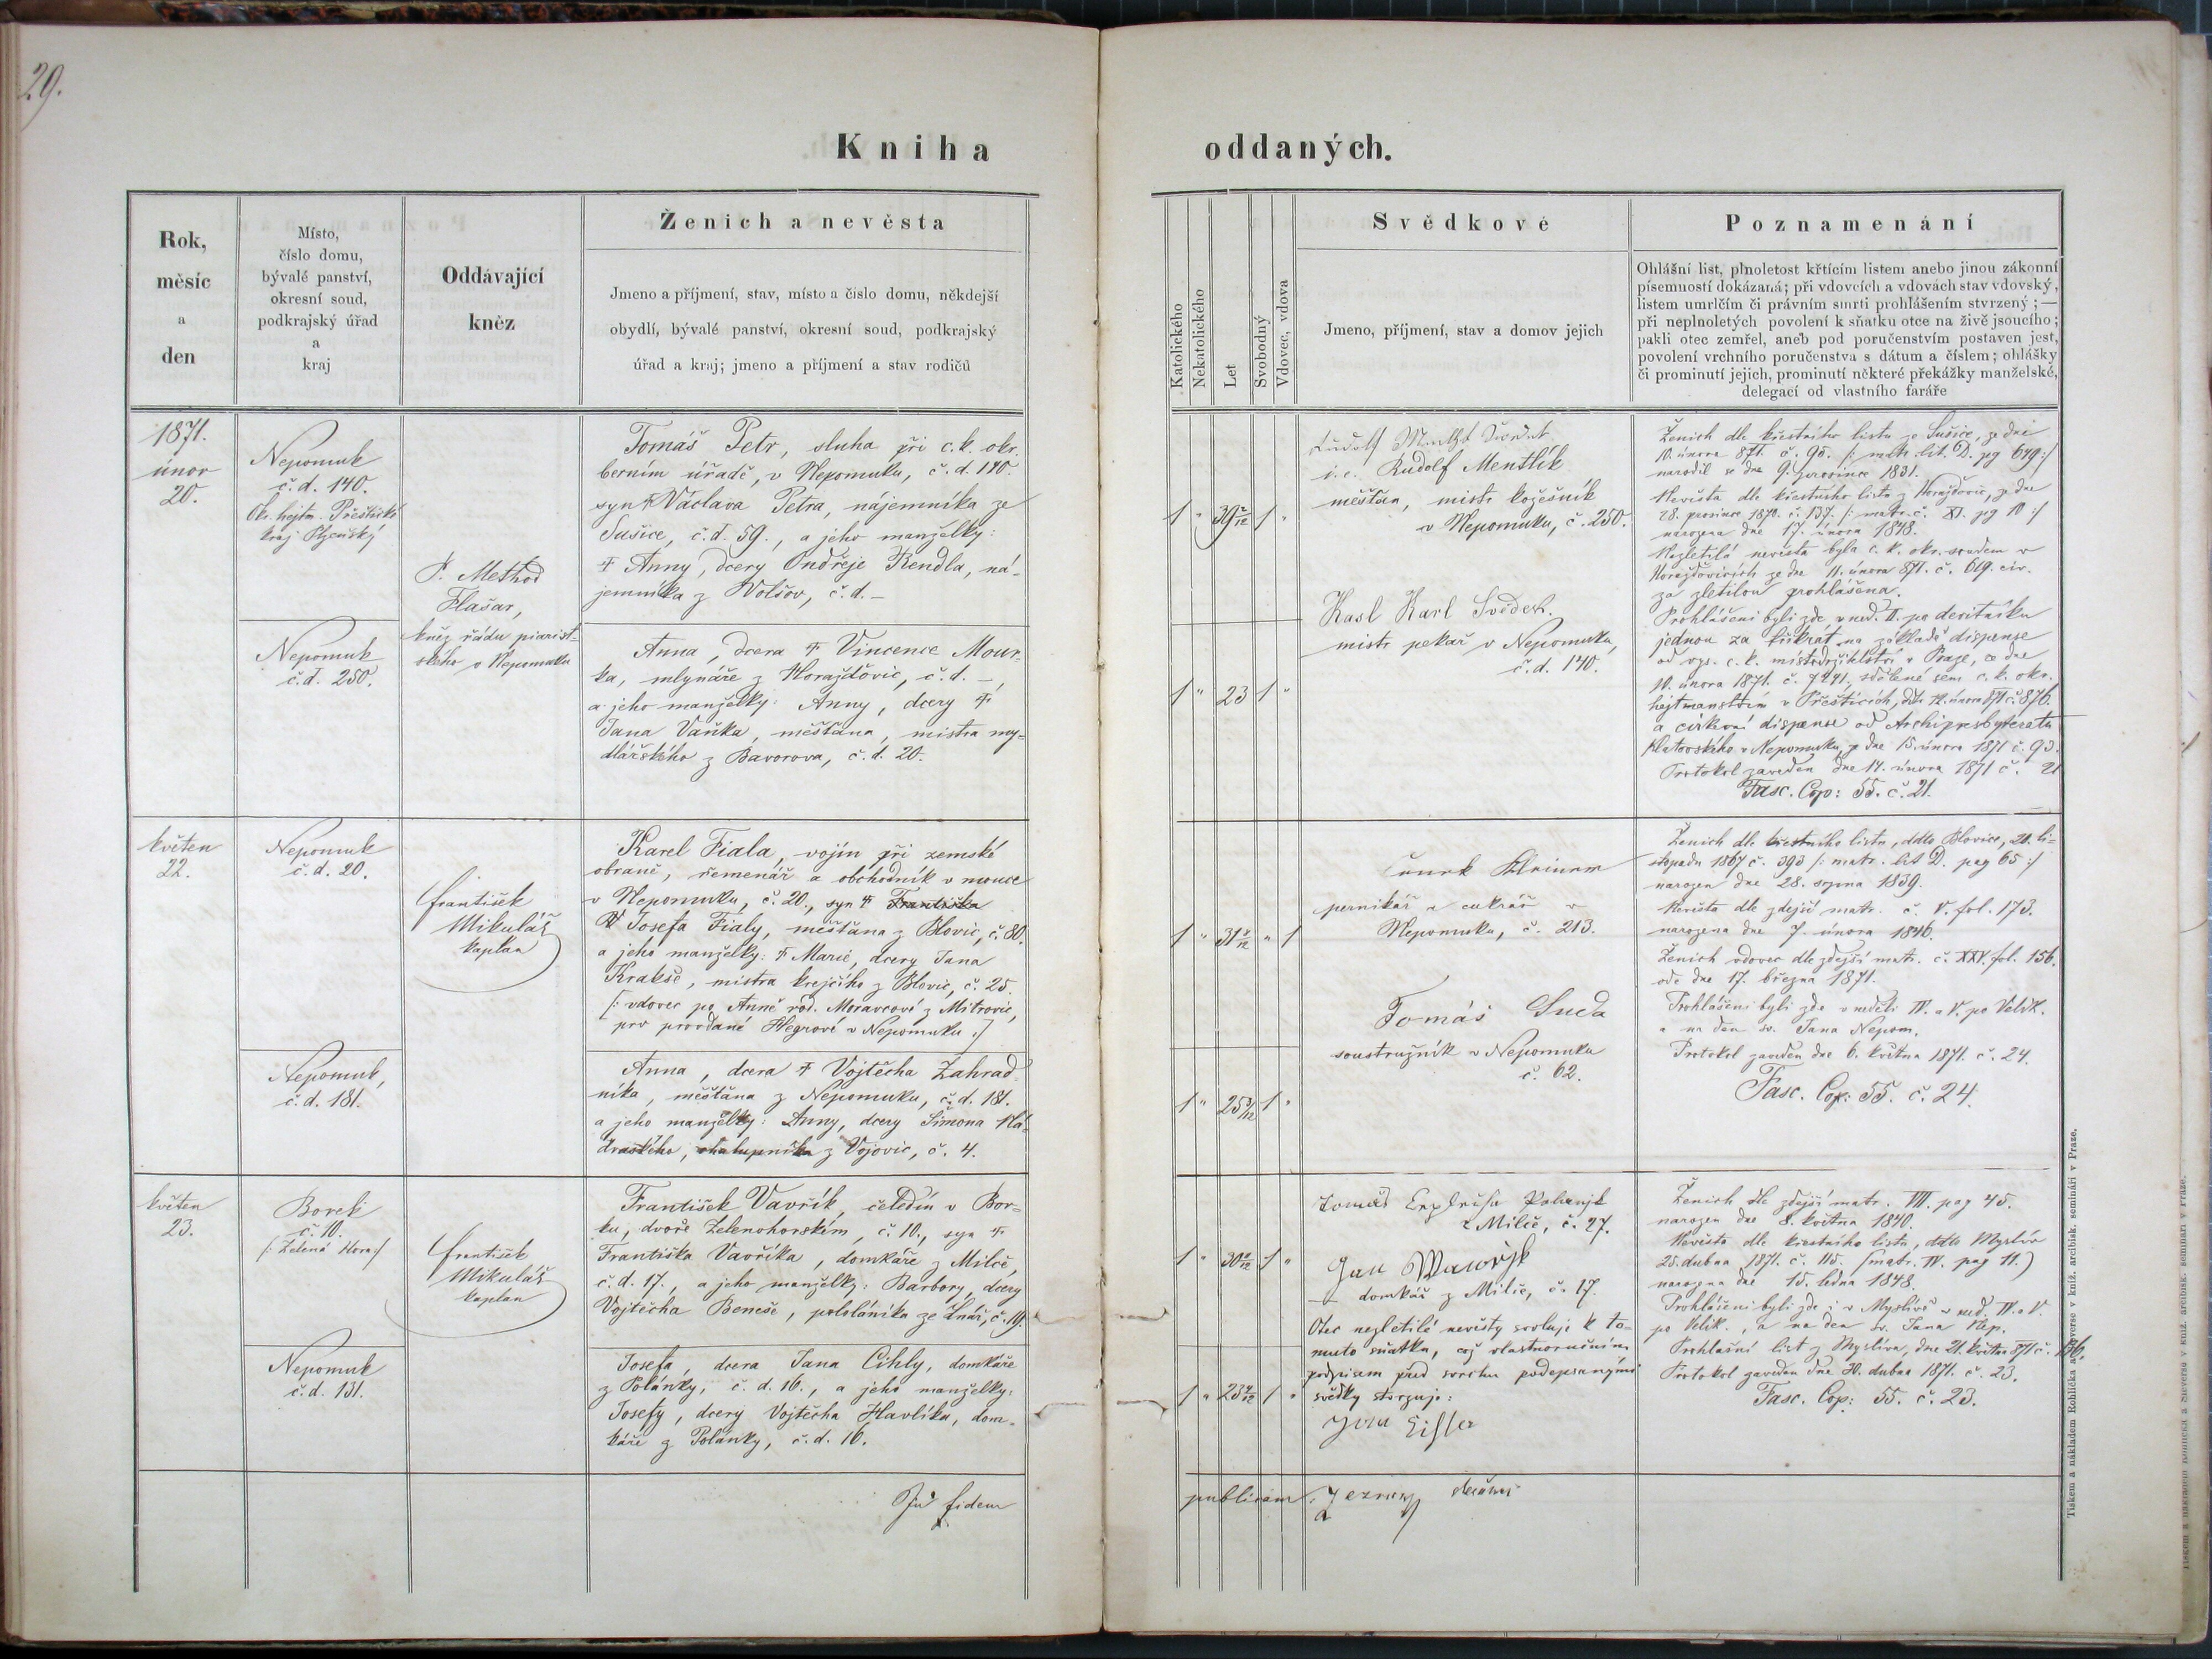 29.
Kniha oddaných.
Rok,
měsíc
a
den
Místo,
číslo domu,
bývalé panství,
okresní soud,
podkrajský úřad
a
kraj
Oddávající
kněz
Ženich a nevěsta
Jmeno a příjmení, stav, místo a číslo domu, někdejší
obydlí, bývalé panství, okresní soud, podkrajský
úřad a kraj; jmeno a příjmení a stav rodičů
Katolického
Nekatolického
Let
Svobodný
Vdovec, vdova
Svědkové
Jmeno, příjmení, stav a domov jejich
Poznamenání
Ohlášní list, plnoletost křtícím listem anebo jinou zákonní
písemností dokázaná; při vdovcích a vdovách stav vdovský,
listem umrlčím či právním smrti prohlášením stvrzený; —
při neplnoletých povolení k sňatku otce na živě jsoucího;
pakli otec zemřel, aneb pod poručenstvím postaven jest,
povolení vrchního poručenstva s dátum a číslem; ohlášky
či prominutí jejich, prominutí některé překážky manželské,
delegací od vlastního faráře
1871.
únor
20.
Nepomuk
č. d. 140.
Okr. hejtm. Přeštické
kraj Plzeňský
Nepomuk
č. d. 250.
P. Method
Flašar,
kněz řádu piarist-
ského v Nepomuku
Tomáš Petr, sluha při c. k. okr.
berním úřadě, v Nepomuku, č. d. 140
syn † Václava Petra, nájemníka ze
Sušice, č. d. 59., a jeho manželky:
† Anny, dcery Ondřeje Rendla, ná-
jemníka z Volšov, č. d. –
Anna, dcera † Vincence Mour-
ka, mlynáře z Horažďovic, č. d. –,
a jeho manželky: Anny, dcery †
Jana Vaňka, měšťana, mistra my-
dlářského z Bavorova, č. d. 20.
1 " 39 2/12 1 "
1 " 23 1 "
i. e. Rudolf Mentlík
měšťan, mistr kožešník
v Nepomuku, č. 250.
Kasl Karl Svědek.
mistr pekař v Nepomuku,
č. d. 140.
Ženich dle křestního listu ze Sušice, ze dne
10. února 871. č. 95. /: matr. lit. D. pg 649 :/
narodil se dne 9. prosince 1831.
Nevěsta dle křestního listu z Horažďovic, ze dne
28. prosince 1870. č. 137. /: matr. č. XI. pg 10 :/
narozena dne 17. února 1848.
Nezletilá nevěsta byla c. k. okr. soudem v
Horažďovicích ze dne 11. února 871. č. 619. civ.
za zletilou prohlášena.
Prohlášeni byli zde v ned. II. po devítníku
jednou za třikrát na základě dispense
od vys. c. k. místodržitelství v Praze, ze dne
10. února 1871. č. 7441, sdělené sem c. k. okr.
hejtmanstvím v Přešticích, ddo 12. února 871 č. 876.
a církevní dispense od Archipresbyteratu
Klatovského v Nepomuku, ze dne 15. února 1871 č. 93.
Protokol zaveden dne 14. února 1871 č. 21
Fasc. Cop: 55. č. 21.
květen
22.
Nepomuk
č. d. 20.
Nepomuk,
č. d. 181.
František
Mikuláš
kaplan
Karel Fiala, vojín při zemské
obraně, řemenář a obchodník v mouce
v Nepomuku, č. 20., syn † Františka
Josefa Fialy, měšťana z Blovic, č. 80.
a jeho manželky: † Marie, dcery Jana
Krakše, mistra krejčího z Blovic, č. 25.
/: vdovec po Anně roz. Moravcové z Mitrovic,
prv provdané Hegrové v Nepomuku :/
Anna, dcera † Vojtěcha Zahrad-
níka, měšťana z Nepomuku, č. d. 181.
a jeho manželky: Anny, dcery Šimona Ná-
dravského, chalupníka z Vojovic, č. 4.
1 " 31 8/12 " 1
1 " 25 3/12 1 "
perníkář a cukrář v
Nepomuku, č. 213.
Tomáš Suda
soustružník v Nepomuku
č. 62.
Ženich dle křestního listu, ddto Blovice, 20. li-
stopadu 1867 č. 393 /: matr. lit D. pag 65 :/
narozen dne 28. srpna 1839.
Nevěsta dle zdejší matr. č. V. fol. 173.
narozena dne 7. února 1846.
Ženich vdovec dle zdejší matr. č. XXV. fol. 156.
ode dne 17. března 1871.
Prohlášeni byli zde v neděli IV. a V. po Velik.
a na den sv. Jana Nepom.
Protokol zaveden dne 6. května 1871. č. 24.
Fasc. Cop: 55. č. 24.
květen
23.
Borek
č. 10.
/: Zelená Hora :/
Nepomuk
č. d. 131.
František
Mikuláš
kaplan
František Vavřík, čeledín v Bor-
ku, dvoře Zelenohorském, č. 10., syn †
Františka Vavříka, domkáře z Milče,
č. d. 17., a jeho manželky: Barbory, dcery
Vojtěcha Beneše, pololáníka ze Lnář, č. 19.
Josefa, dcera Jana Cihly, domkáře
z Polánky, č. d. 16., a jeho manželky:
Josefy, dcery Vojtěcha Havlíka, dom-
káře z Polánky, č. d. 16.
1 " 30 1 "
1 " 23 4/12 1 "
z Milče, č. 27.
Jan Wawržjk
domkář z Milče, č. 17.
Otec nezletilé nevěsty svoluje k to-
muto sňatku, což vlastnoručním
podpisem před svrchu podepsanými
svědky stvrzuje:
Ženich dle zdejší matr. VII. pag 45.
narozen dne 8. května 1840.
Nevěsta dle křestního listu, ddto Myslív
25. dubna 1871. č. 115. (matr. IV. pag 11.)
narozena dne 15. ledna 1848.
Prohlášeni byli zde i v Myslívě v ned. IV. a V.
po Velik., a na den sv. Jana Nep.
Prohlášní list z Myslíva, dne 21. května 871 č. 136.
Protokol zaveden dne 30. dubna 1871. č. 23.
Fasc. Cop: 55. č. 23.
In fidem publicam.
děkan
Tiskem a nákladem Rohlíčka a Sieverse v kniž. arcibisk. semináři v Praze.